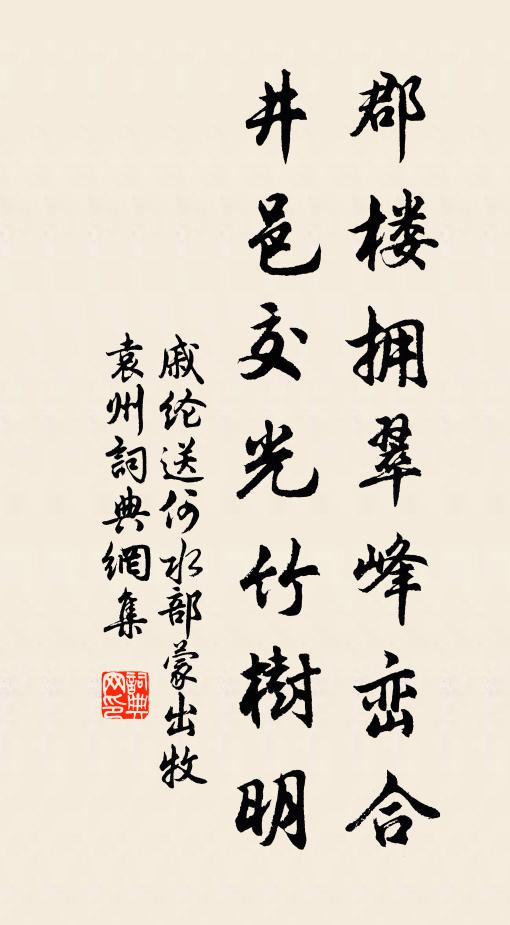 郡楼拥翠峰峦合
井邑交光竹樹明
戚纶送何水部蒙出牧
袁州詞典網集
詞典網印